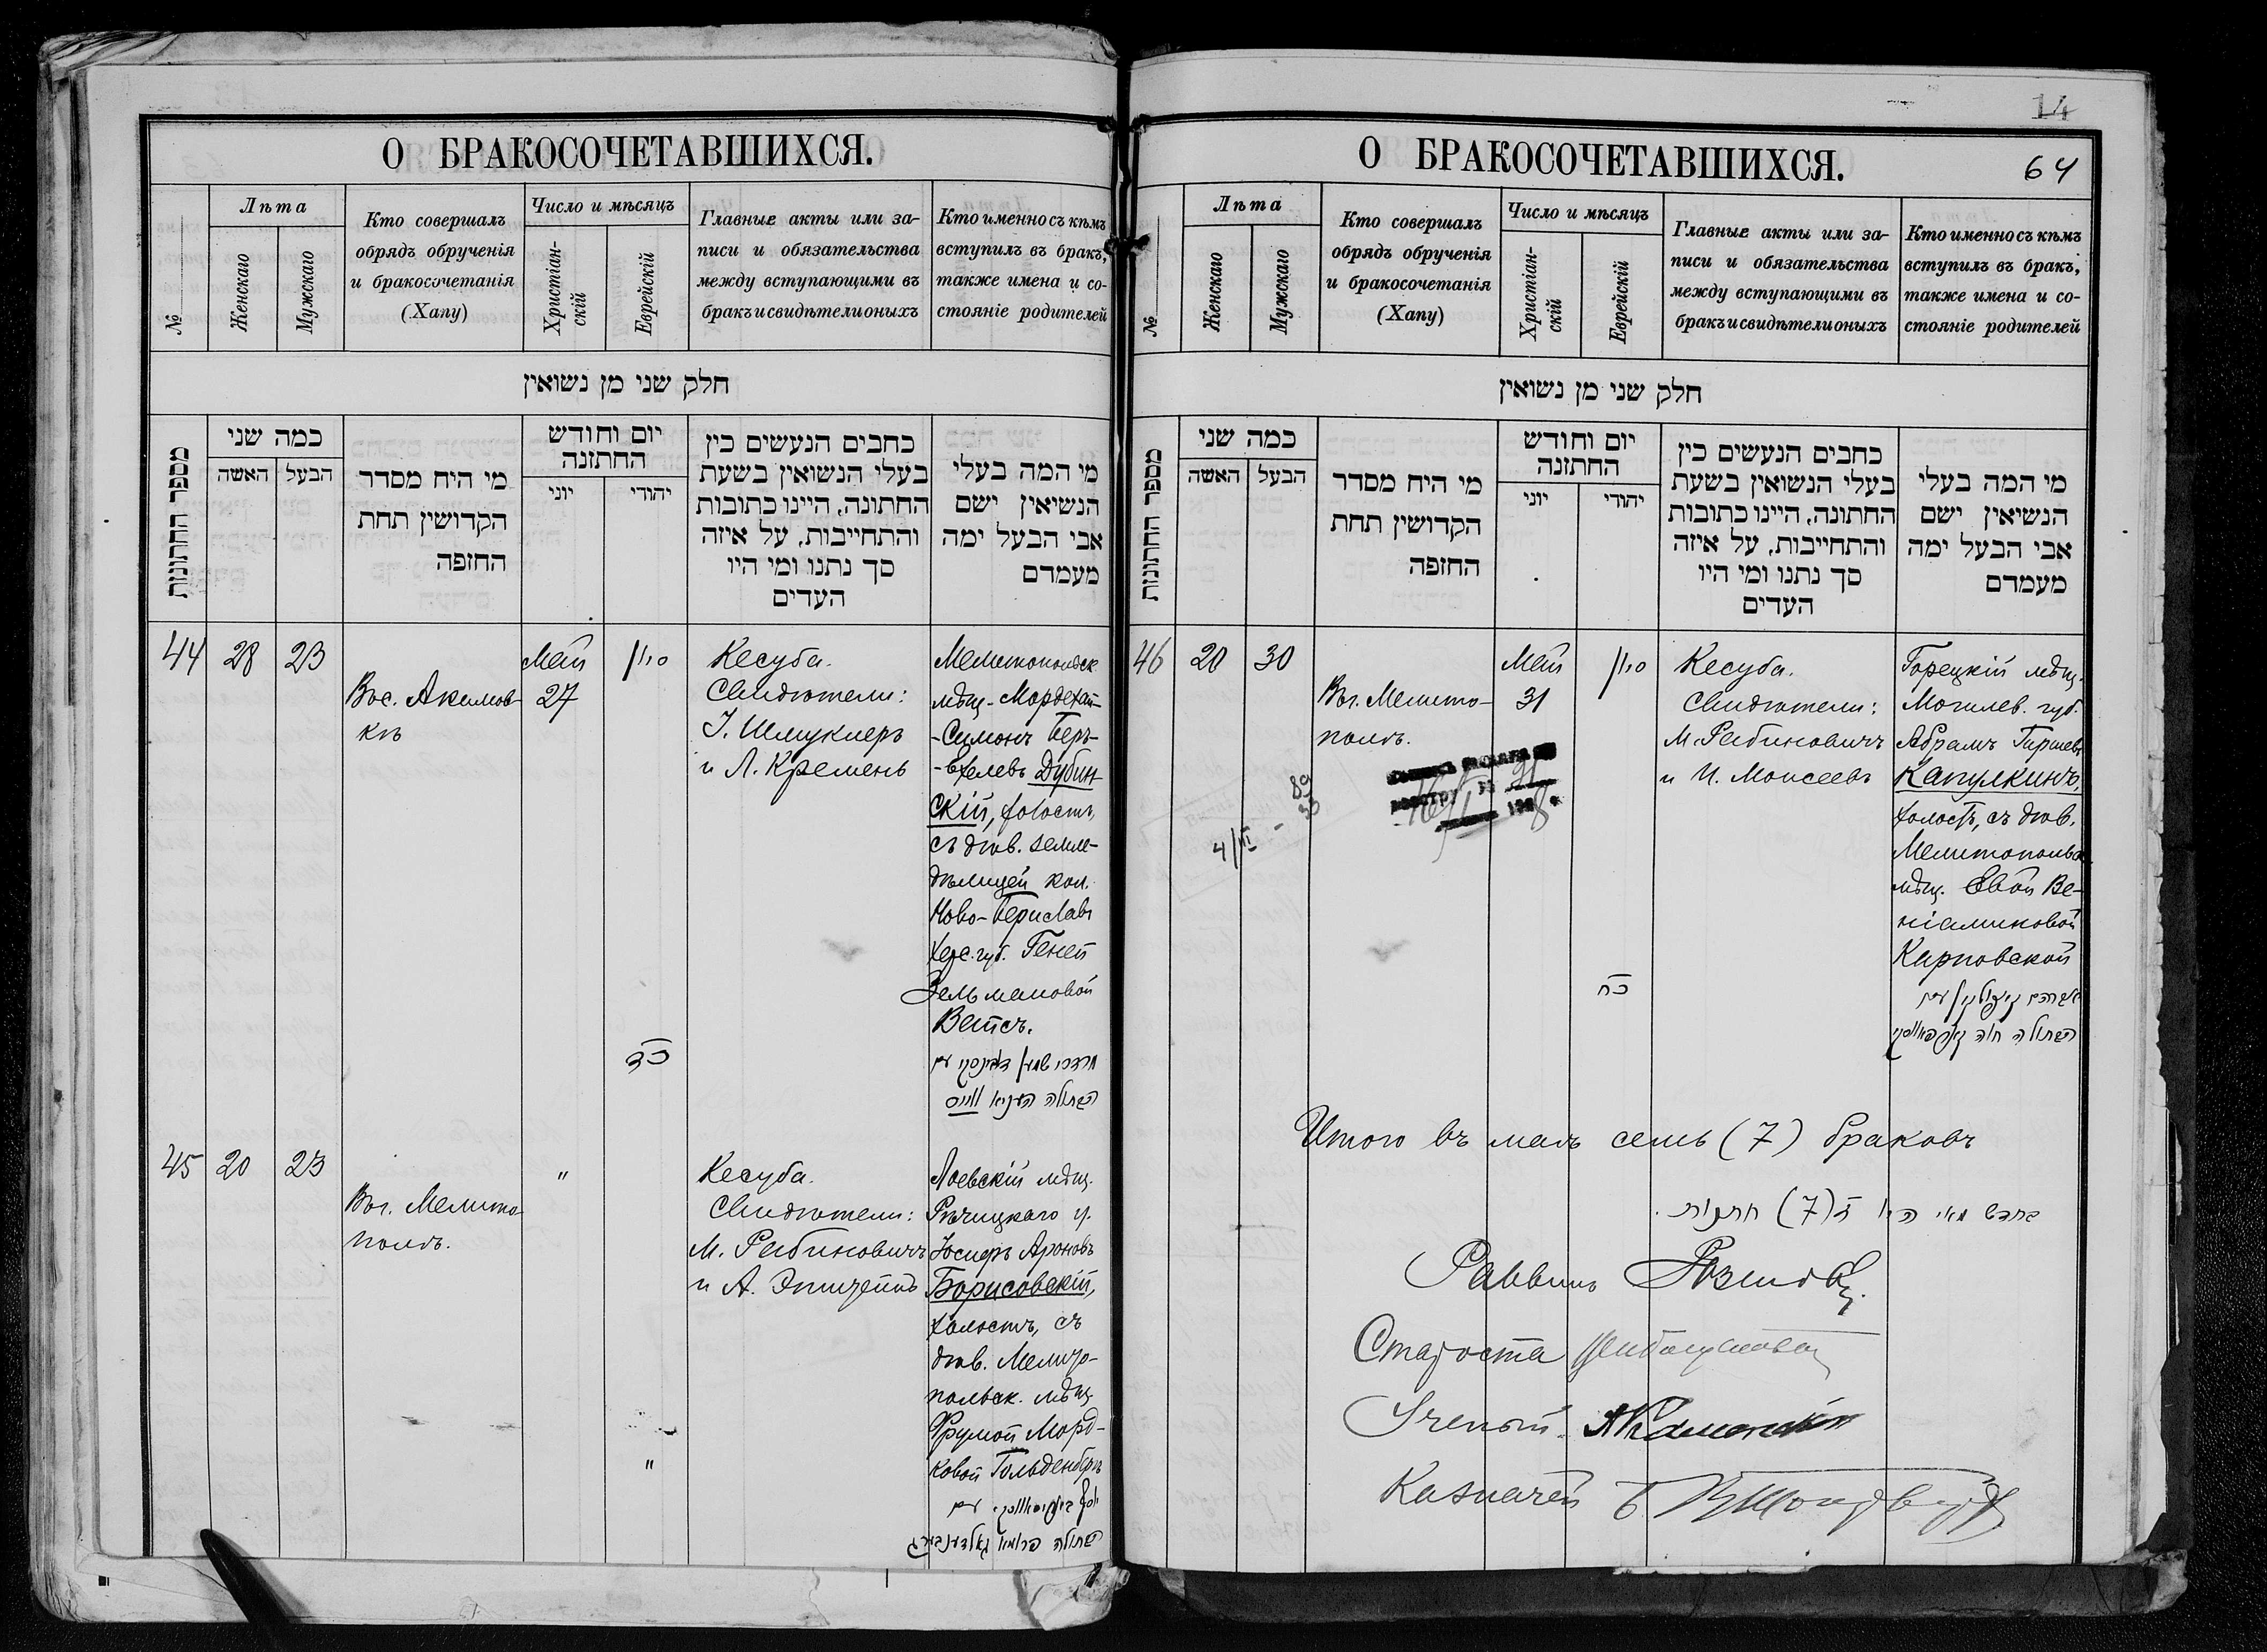 О БРАКОСОЧЕТАВШИХСЯ.
№
Лѣта
Женскаго
Мужскаго
Кто совершалъ
обрядъ обрученія
и бракосочетанія
(Хапу)
Число и мѣсяцъ
Христіан-
скій
Еврейскій
Главные акты или за-
писи и обязательства
между вступающими въ
бракъ и свидѣтели оныхъ
Кто именно съ кѣмъ
вступилъ въ бракъ,
также имена и со-
стояніе родителей
חלק שני מן נשואין
מספר החתונות
כמה שני
האשה
הבעל
מי היח מסדר
הקדושין תחת
החזפה
יום וחודש
החתזנה
יוני
יהודי
כחבים הנעשים כין
בעלי הנשואין בשעת
החתונה, היינו כתובות
והתחייבות, על איזה
סך נתנו ומי היו
העדים
מי המה בעלי
הנשיאין ישם
אבי הבעל ימה
מעמדם
44
28
23
Вос. Акимов-
кѣ
Май
27
סיון
כד
Кесуба.
Свидѣтели:
І. Шмуклеръ
и Л. Кремень
Мелитопольск.
мѣщ. Мордехай-
-Симонъ Беръ-
Дубин-
скій, холостъ,
съ дѣв. земле-
дѣлицей кол.
Ново-Бериславъ
Херс. губ. Геней
Зельмановой
Вейсъ.
מרדכי שמעון דובינסקי עם
הבתולה העניא ווייס
45
20
23
Въ г. Мелито-
полѣ.
"
"
Кесуба.
Свидѣтели:
М. Рабиновичъ
и А.
Лоевскій мѣщ.
Рѣчицкаго у.
Іосифъ Ароновъ
Борисовскій,
холостъ, съ
дѣв. Мелито-
польск. мѣщ.
Фрумой Морд-
ковой Гольденбергъ
יוסף עם
הבתולה פרומא גאלדענבערג
О БРАКОСОЧЕТАВШИХСЯ.
14
64
№
Лѣта
Женскаго
Мужскаго
Кто совершалъ
обрядъ обрученія
и бракосочетанія
(Хапу)
Число и мѣсяцъ
Христіан-
скій
Еврейскій
Главные акты или за-
писи и обязательства
между вступающими въ
бракъ и свидѣтели оныхъ
Кто именно съ кѣмъ
вступилъ въ бракъ,
также имена и со-
стояніе родителей
חלק שני מן נשואין
מספר החתונות
כמה שני
האשה
הבעל
מי היח מסדר
הקדושין תחת
החזפה
יום וחודש
החתזנה
יוני
יהודי
כחבים הנעשים כין
בעלי הנשואין בשעת
החתונה, היינו כתובות
והתחייבות, על איזה
סך נתנו ומי היו
העדים
מי המה בעלי
הנשיאין ישם
אבי הבעל ימה
מעמדם
46
20
30
Въ г. Мелито-
полѣ.
Май
31
סיון
כח
Кесуба.
Свидѣтели:
М. Рабиновичъ
и И. Моисеевъ
Горецкій мѣщ.
Могилев. губ.
Абрамъ Гиршевъ
Капулкинъ,
холостъ, съ дѣв.
Мелитопольс.
мѣщ. Евой Ве-
ніаминовой
Карповской
אברהם קאפולקין עם
הבתולה חוה קארפאווסקי
Итого въ маѣ семь (7) браковъ
בחדש מאי היו ז (7) חתונות.
Раввинъ
Староста
Ученый
Казначей